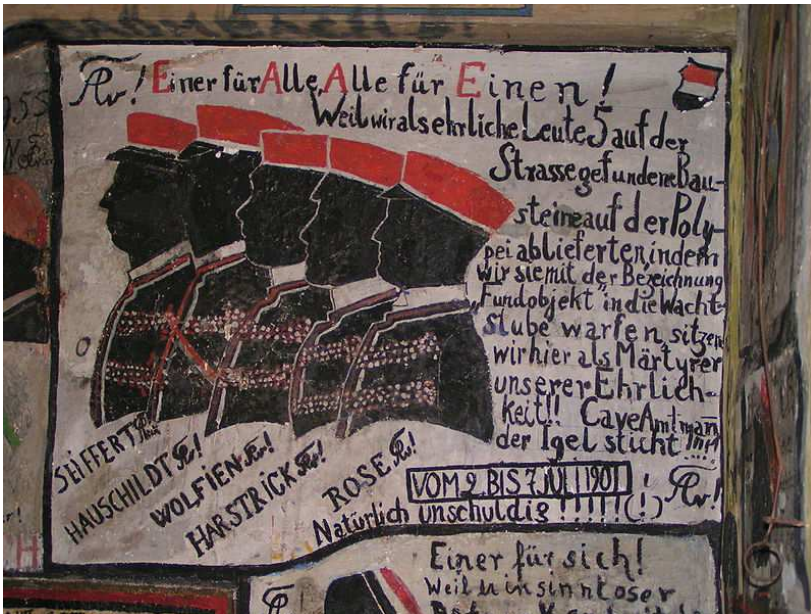 ! Einer für Alle, Alle für Einen!
Weil wir als ehrliche Leute 5 auf der
Strasse gefundene Bau-
steine auf der Poly-
pei ablieferten, indem
wir sie mit der Bezeichnung
„Fundobjekt" in die Wacht-
stube warfen, sitzen
wir hier als Märtyrer
unserer Ehrlich-
keit!! Cave Amtmañ
der Igel sticht !!!!
SEIFFERT
HAUSCHILDT !
WOLFIEN !
HARSTRICK !
ROSE !
VOM 2. BIS 7. JULI 1901
Natürlich unschuldig !!!!!(!)
Einer für sich!
Weil er in sinnloser